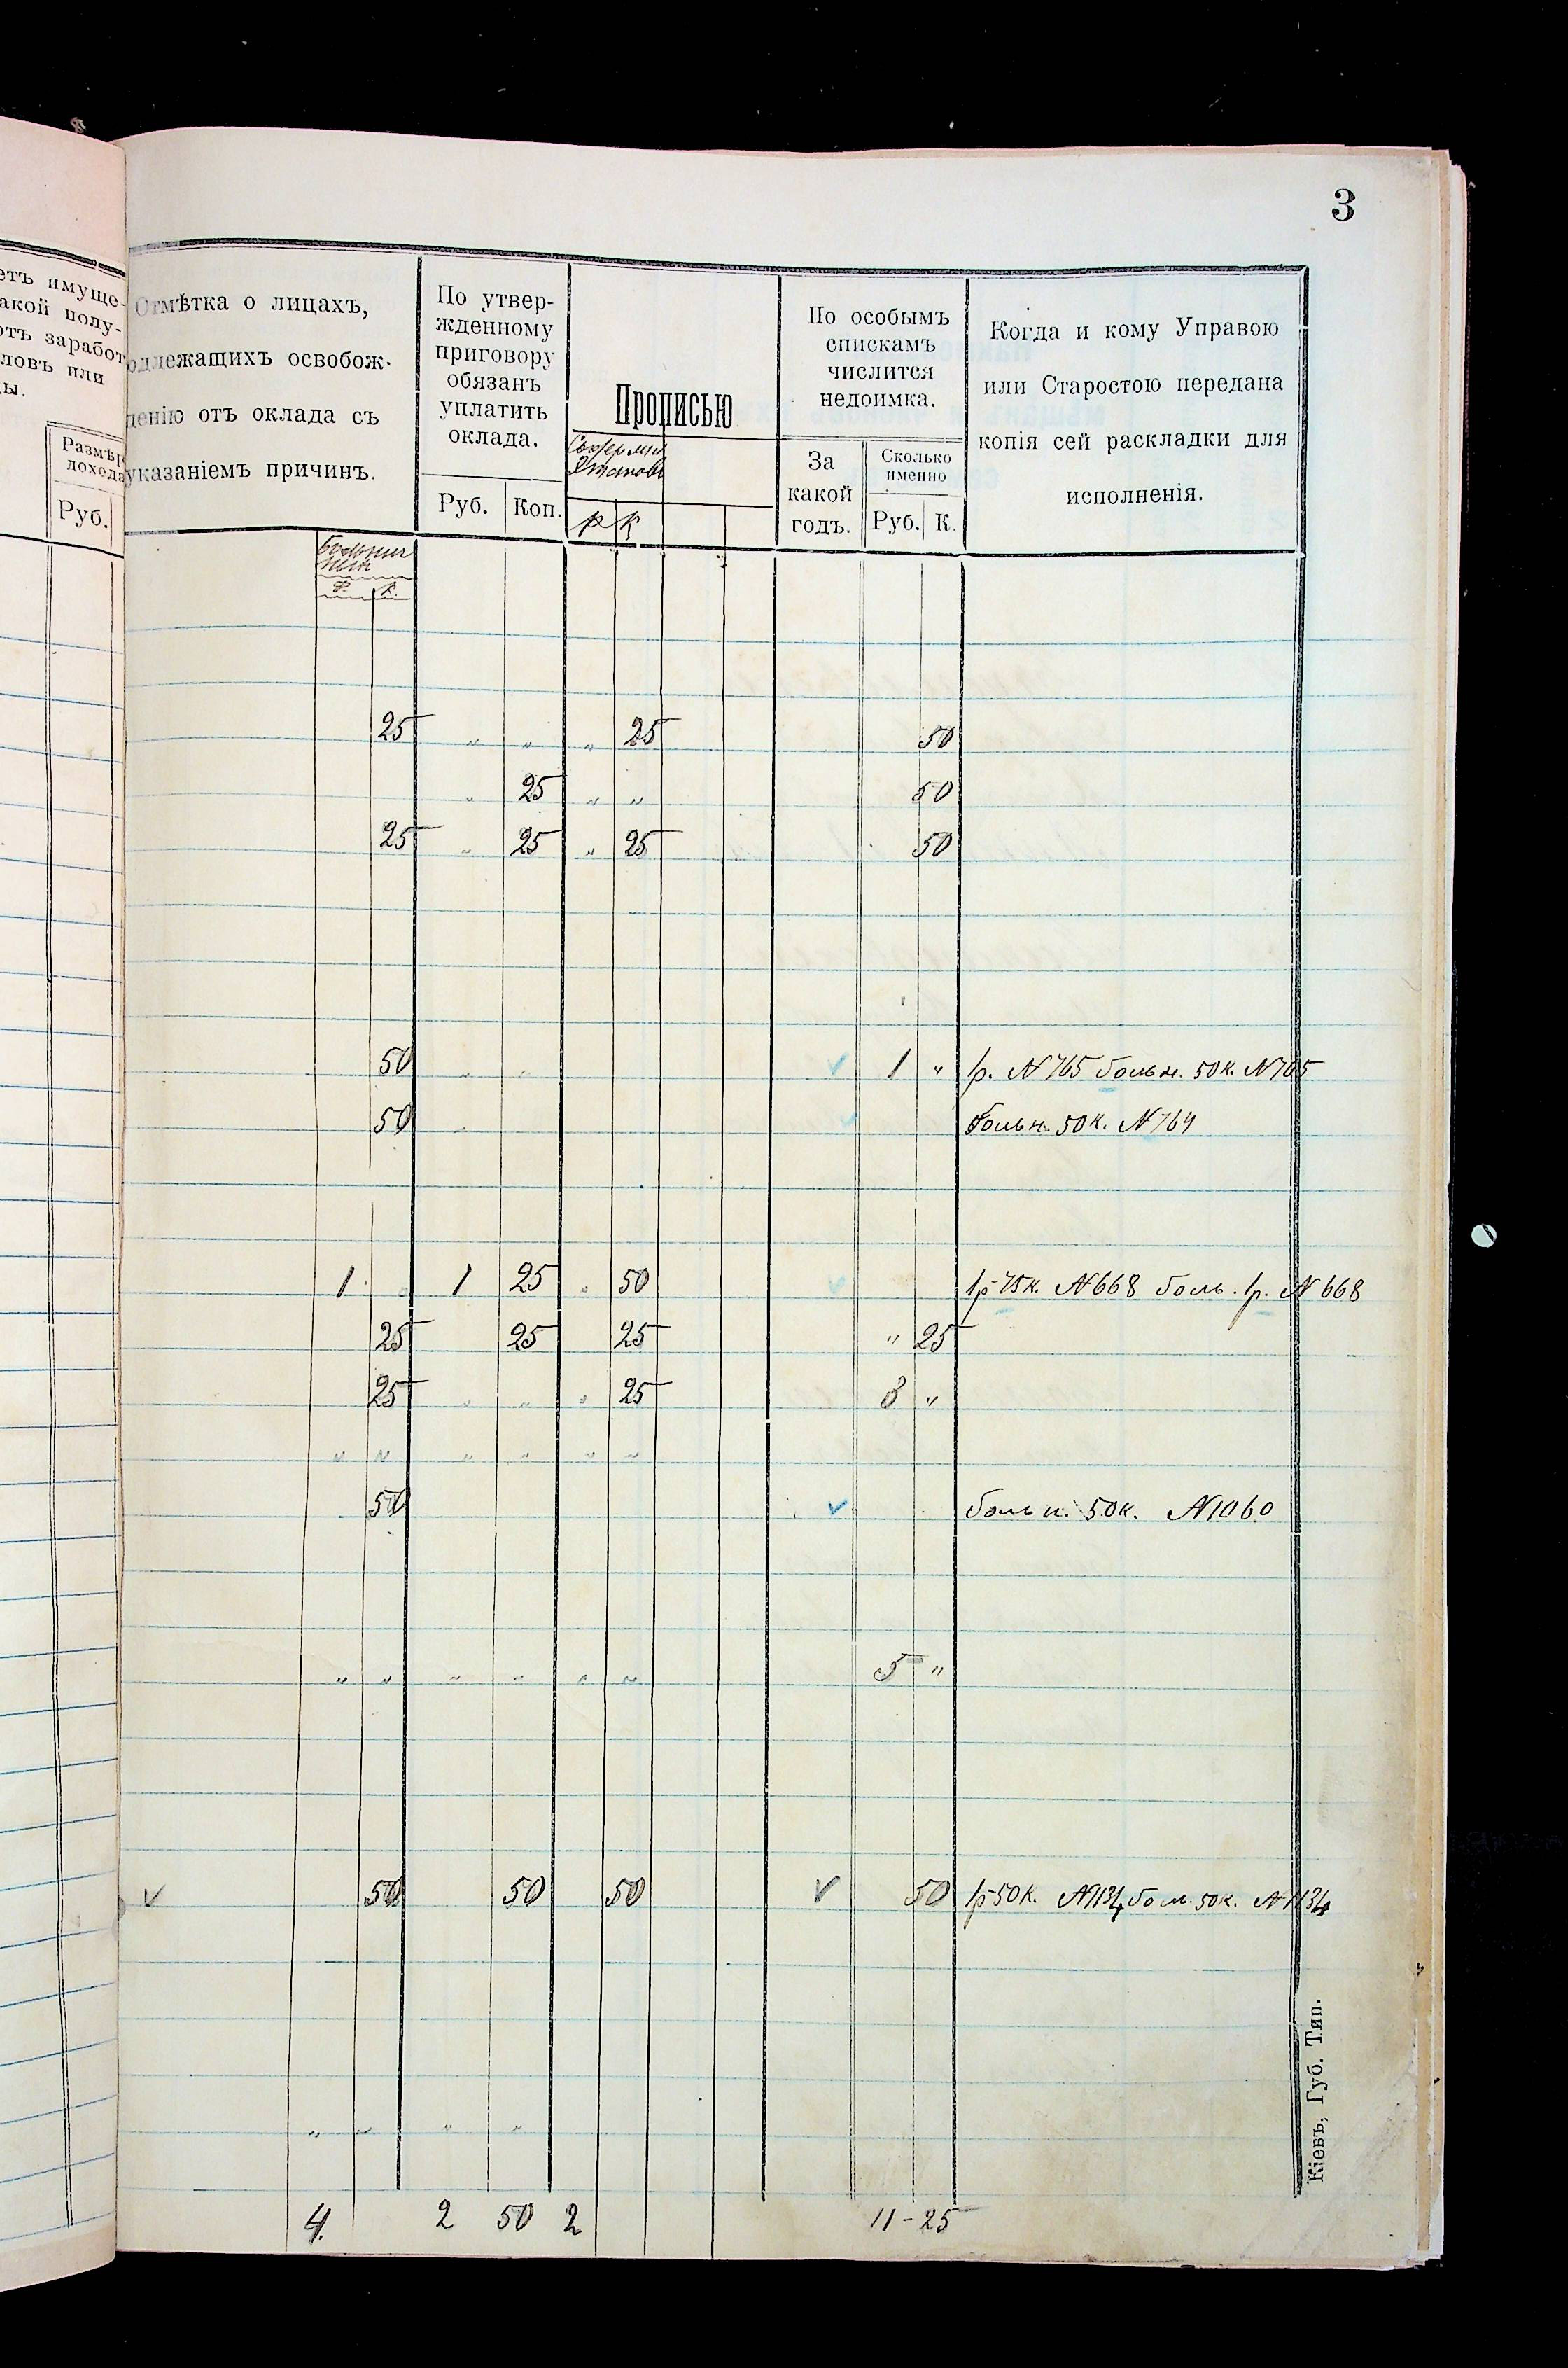 3
етъ имуще-
акой полу-
отъ заработ
ловъ или
ы.
Размѣр
дохода
Руб.
Отмѣтка о лицахъ,
одлежащихъ освобож-
денію отъ оклада съ
указаніемъ причинъ.
По утвер-
жденному
приговору
обязанъ
уплатить
оклада.
Руб. Коп.
Прописью
р К
По особымъ
спискамъ
числится
недоимка.
За
какой
годъ.
Сколько
именно
Руб. К.
Когда и кому Управою
или Старостою передана
копія сей раскладки для
исполненія.
Р. К.
25 " " " 25 50
" 25 " " 50
25 " 25 " 25 50
50 " " 1 " 1р. N 765 больн. 50к. N765
50 " больн. 50к. N 764
1 " 1 25 " 50 1р 75к. N668 боль. 1р. N 668
25 25 25 " 25
25 " " " 25 3 "
" " " " " "
50 больн. 50к. N1060
" " " " " " 5 "
50 50 50 50 1р 50к. N1134 бол. 50к. N1134
" " " "
4. 2 50 2 11-25
Кіевъ, Губ. Тип.